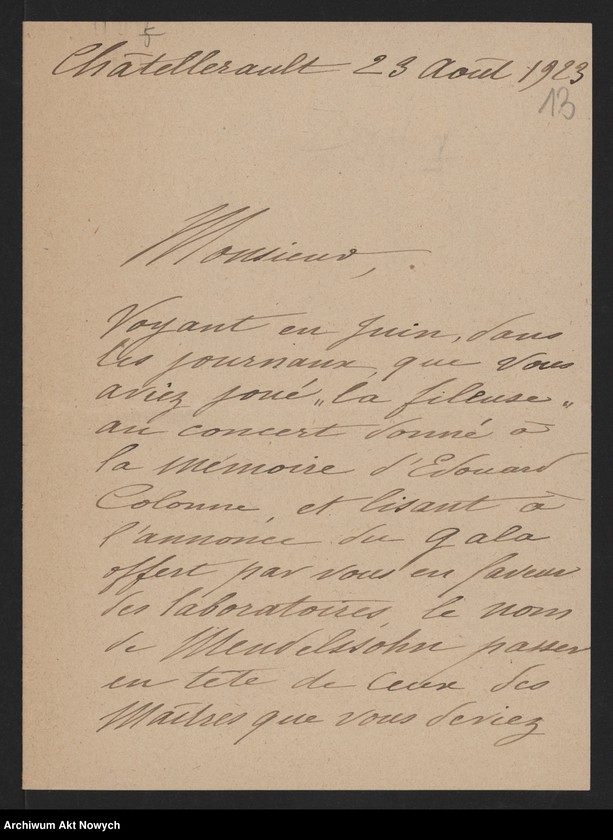 5
Châtellerault 23 Août 1923
13
Monsieur,
Voyant en Juin, dans
les journaux, que vous
aviez joué „la fileuse„
au concert donné à
la mémoire d'Edouard
Colonne, et lisant à
l'annonce du gala
offert par vous en faveur
des laboratoires, le nom
de Mendelssohn passer
en tête de ceux des
Maîtres que vous deviez
Archiwum Akt Nowych